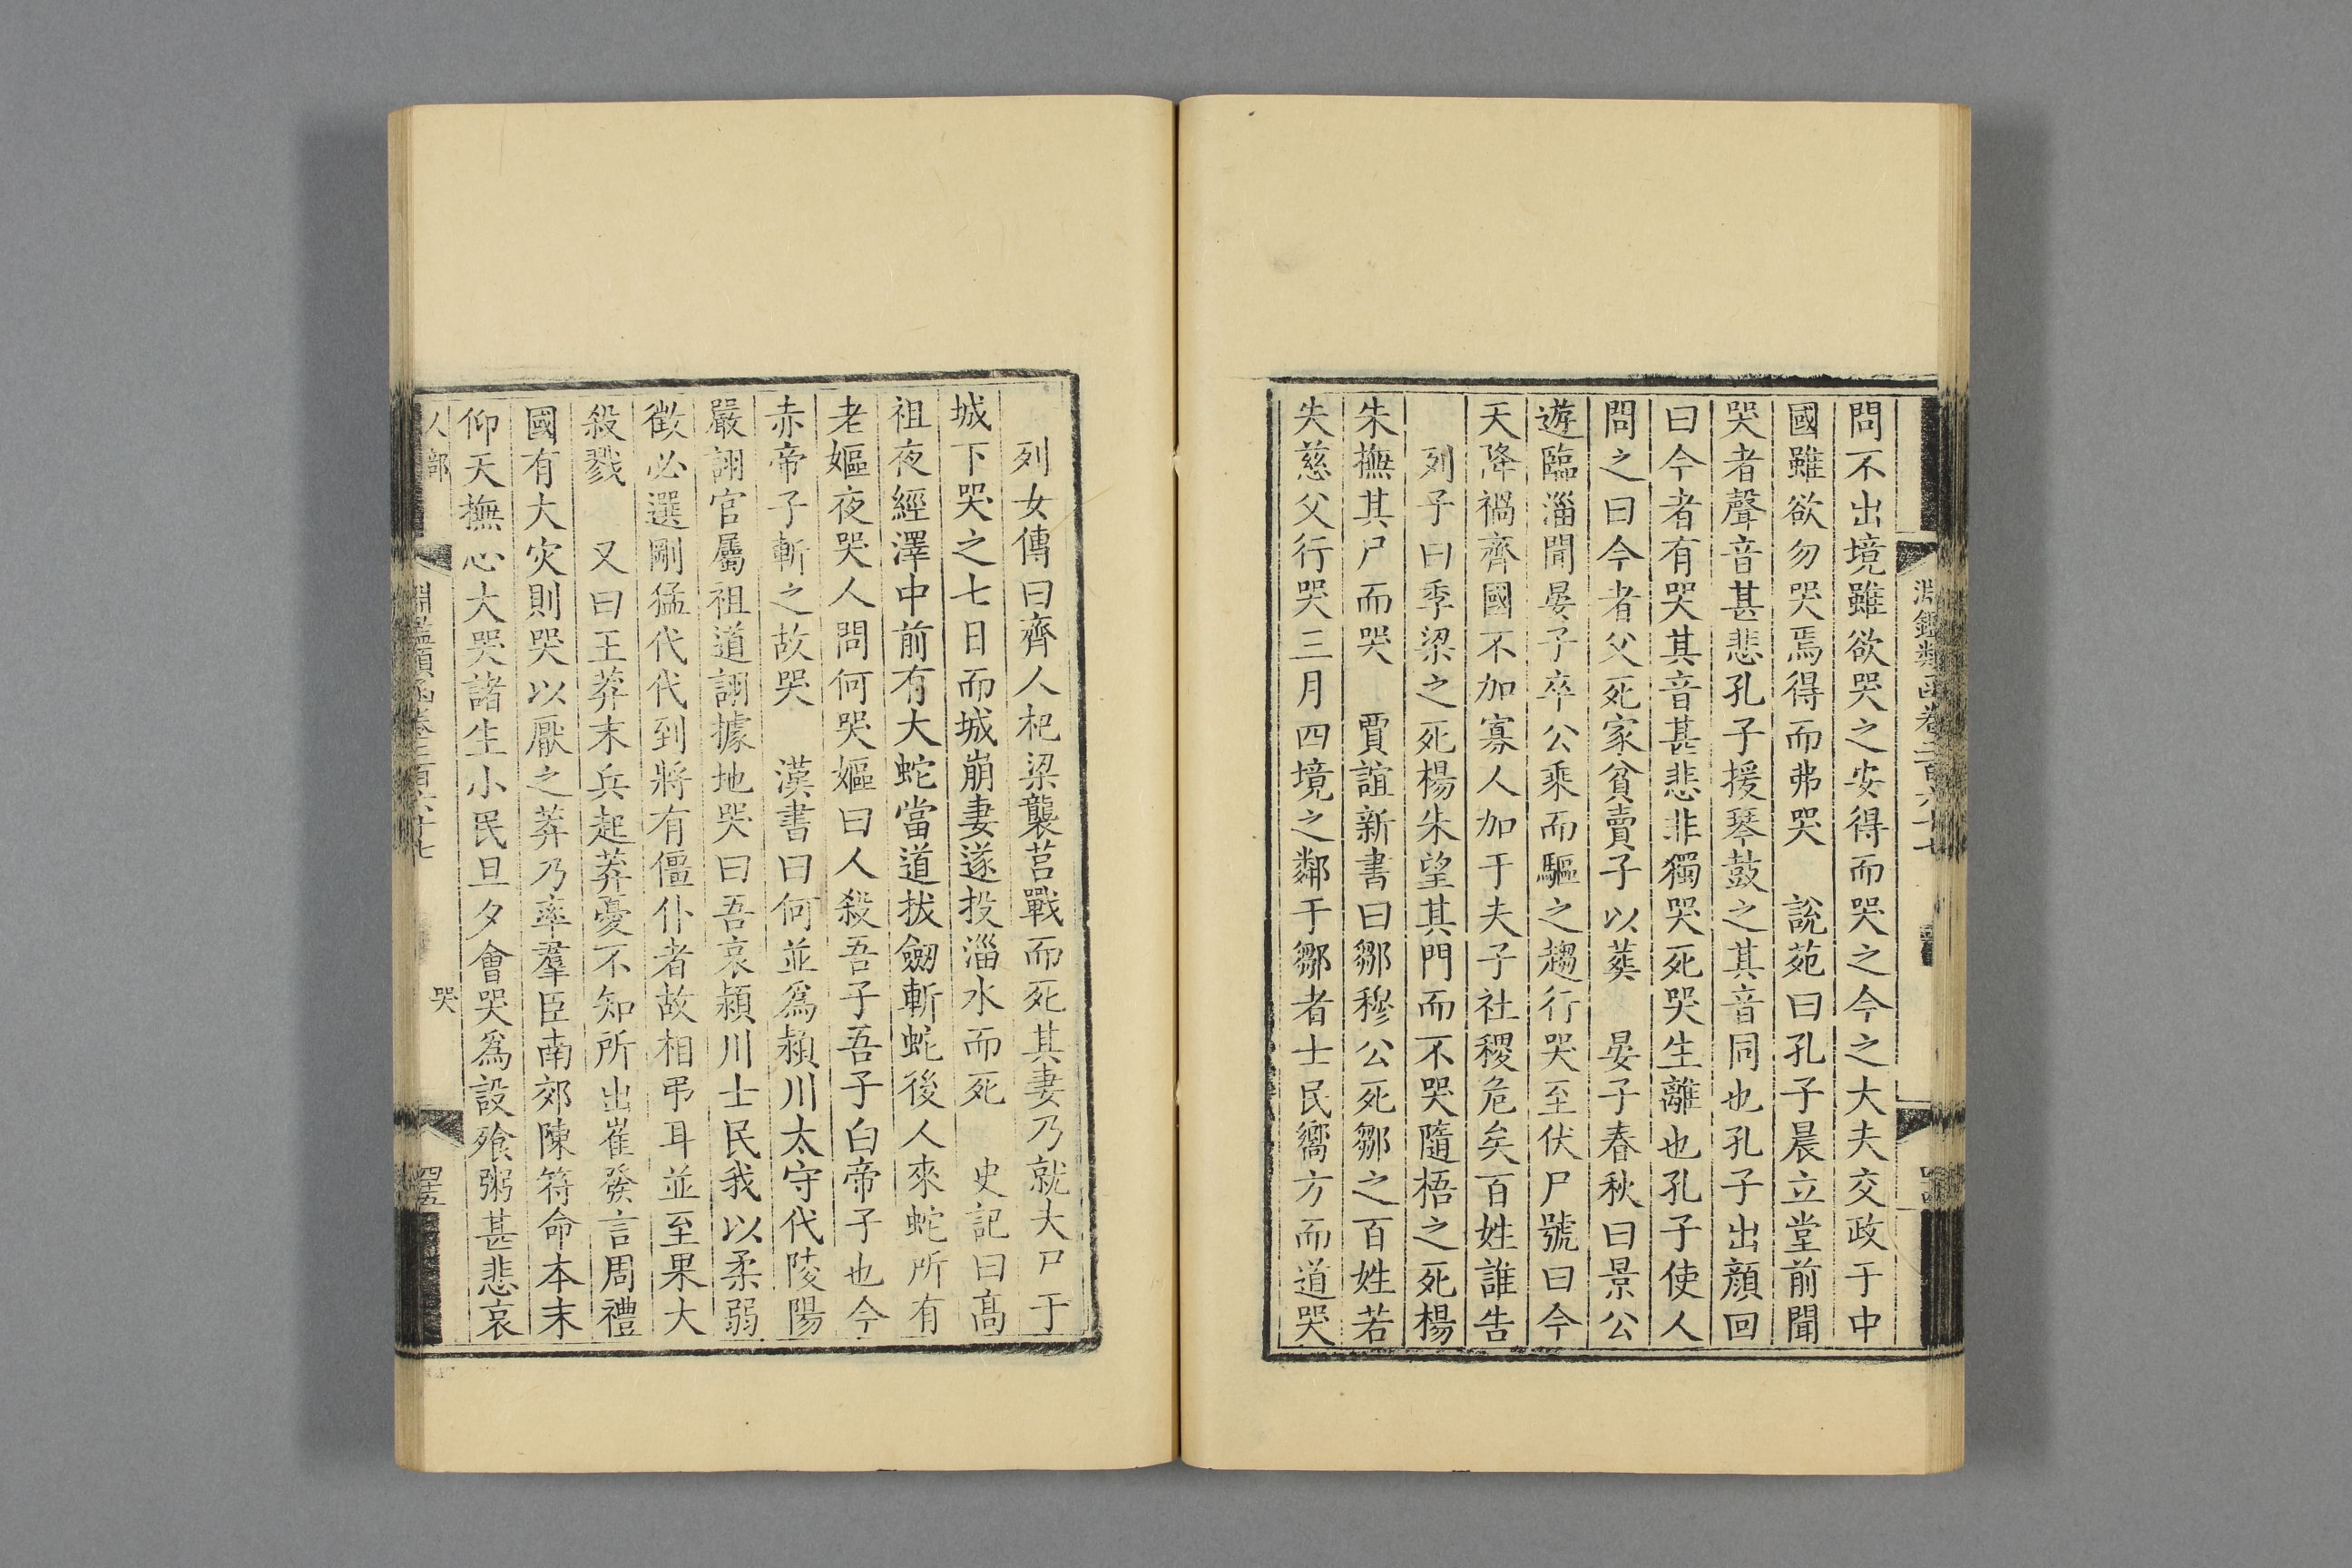 問不出境雖欲哭之安得而哭之今之大夫交政于中
國雖欲勿哭焉得而弗哭　說苑曰孔子晨立堂前聞
哭者聲音甚悲孔子援琴鼓之其音同也孔子出顏回
曰今者有哭其音甚悲非獨哭死哭生離也孔子使人
問之曰今者父死家貧賣子以葬　晏子春秋曰景公
遊臨淄聞晏子卒公乘而驅之趨行哭至伏尸號曰今
天降禍齊國不加寡人加于夫子社稷危矣百姓誰告
列子曰季梁之死楊朱望其門而不哭隨梧之死楊
朱撫其尸而哭　賈誼新書曰鄒穆公死鄒之百姓若
失慈父行哭三月四境之鄰于鄒者士民嚮方而道哭
列女傳曰齊人杞梁襲莒戰而死其妻乃就夫尸于
城下哭之七日而城崩妻遂投淄水而死　史記曰高
祖夜經澤中前有大蛇當道拔劒斬蛇後人來蛇所有
老嫗夜哭人問何哭嫗曰人殺吾子吾子白帝子也今
赤帝子斬之故哭　漢書曰何並爲潁川太守代陵陽
嚴詡官屬祖道詡據地哭曰吾哀潁川士民我以柔弱
徵必選剛猛代代到將有僵仆者故相弔耳並至果大
殺戮　又曰王莽末兵起莽憂不知所出崔發言周禮
國有大災則哭以厭之莽乃率羣臣南郊陳符命本末
仰天撫心大哭諸生小民旦夕會哭爲設飱粥甚悲哀
人部
淵鑑類函卷二百六十七
哭